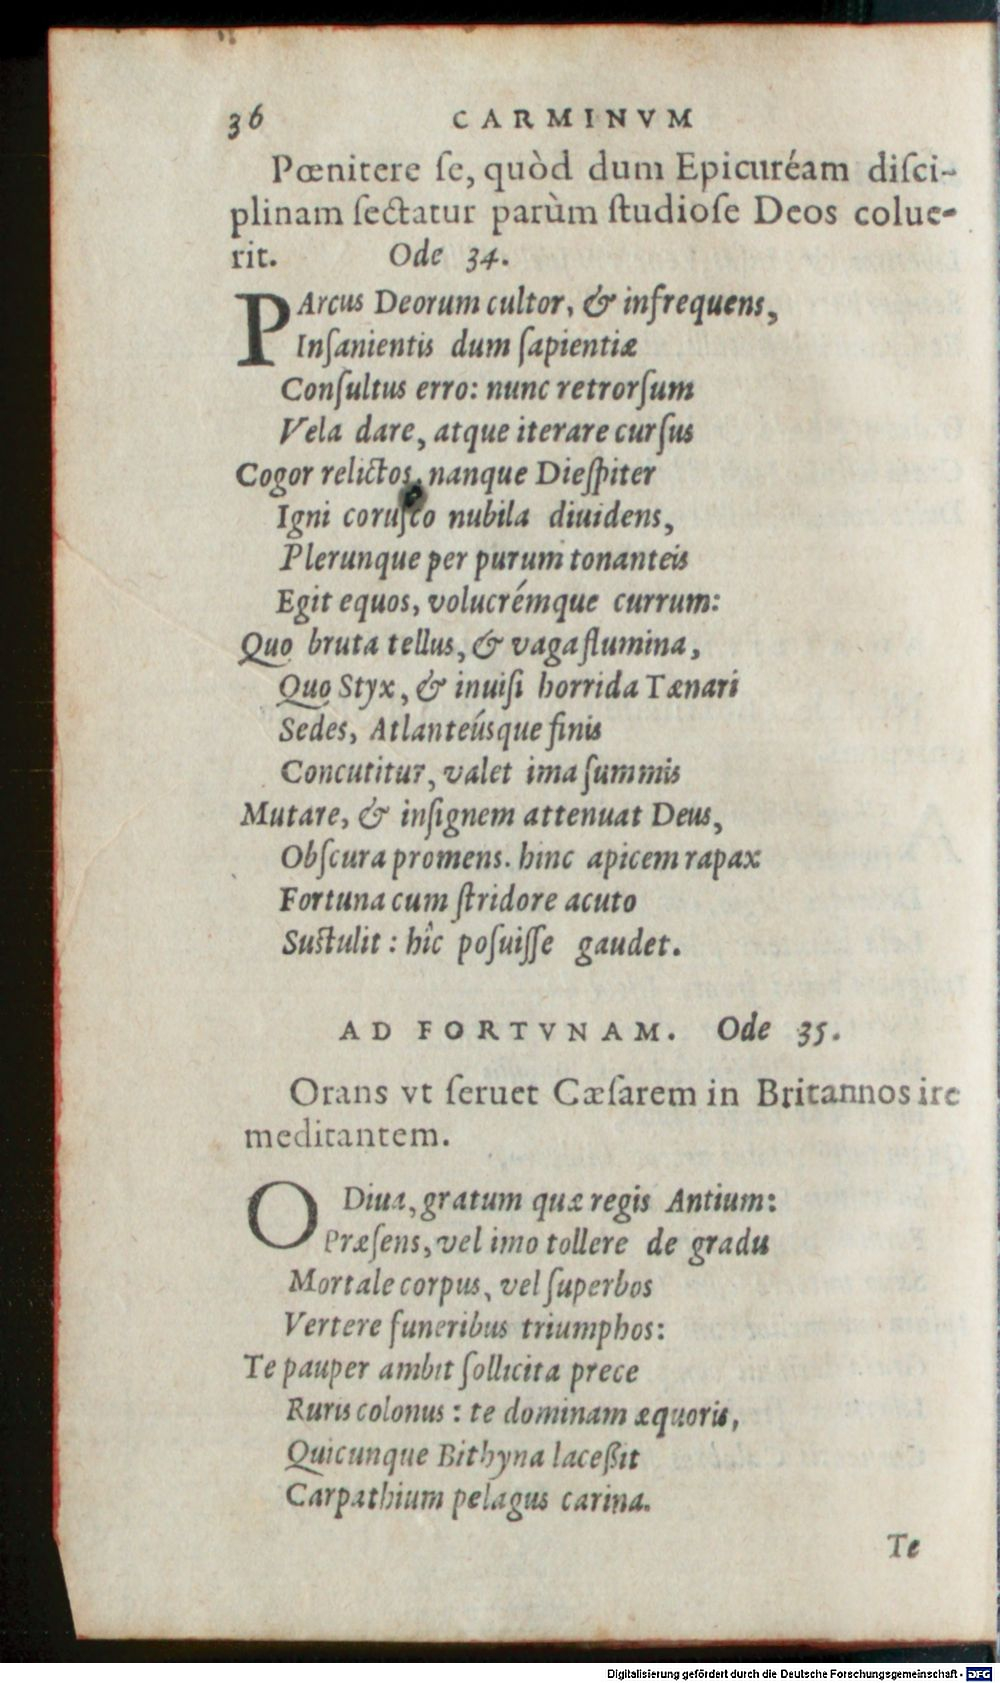 36 CARMINVM
Pœnitere ſe, quòd dum Epicuréam diſci-
plinam ſectatur parùm ſtudioſe Deos colue-
rit. Ode 34.
PArcus Deorum cultor, & infrequens,
Inſanientis dum ſapientiæ
Conſultus erro: nunc retrorſum
Vela dare, atque iterare curſus
Cogor relictos, nanque Dieſpiter
Igni coruſco nubila diuidens,
Plerunque per purum tonanteis
Egit equos, volucrémque currum:
Quo bruta tellus, & vaga flumina,
Quo Styx, & inuiſi horrida Tænari
Sedes, Atlanteúsque finis
Concutitur, valet ima ſummis
Mutare, & inſignem attenuat Deus,
Obſcura promens. hinc apicem rapax
Fortuna cum ſtridore acuto
Suſtulit : hîc poſuiſſe gaudet.
AD FORTVNAM. Ode 35.
Orans vt ſeruet Cæſarem in Britannos ire
meditantem.
O Diua, gratum quæ regis Antium:
Præſens, vel imo tollere de gradu
Mortale corpus, vel ſuperbos
Vertere funeribus triumphos:
Te pauper ambit ſollicita prece
Ruris colonus : te dominam æquoris,
Quicunque Bithyna laceßit
Carpathium pelagus carina.
Te
Digitalisierung gefördert durch die Deutsche Forschungsgemeinschaft - DFG